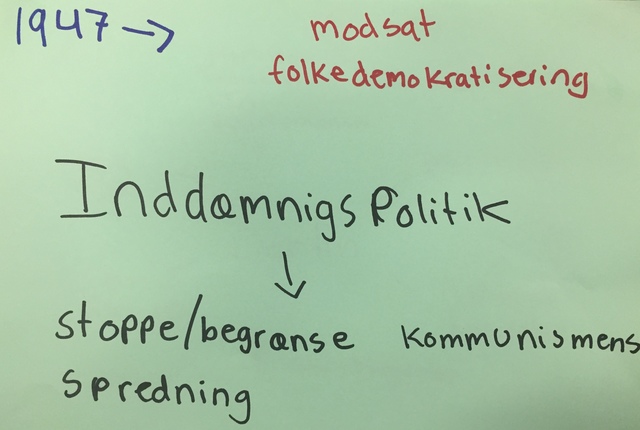 1947 →
modsat
folkedemokratisering
Inddæmnigs Politik
↓
stoppe/begrænse kommunismens
spredning